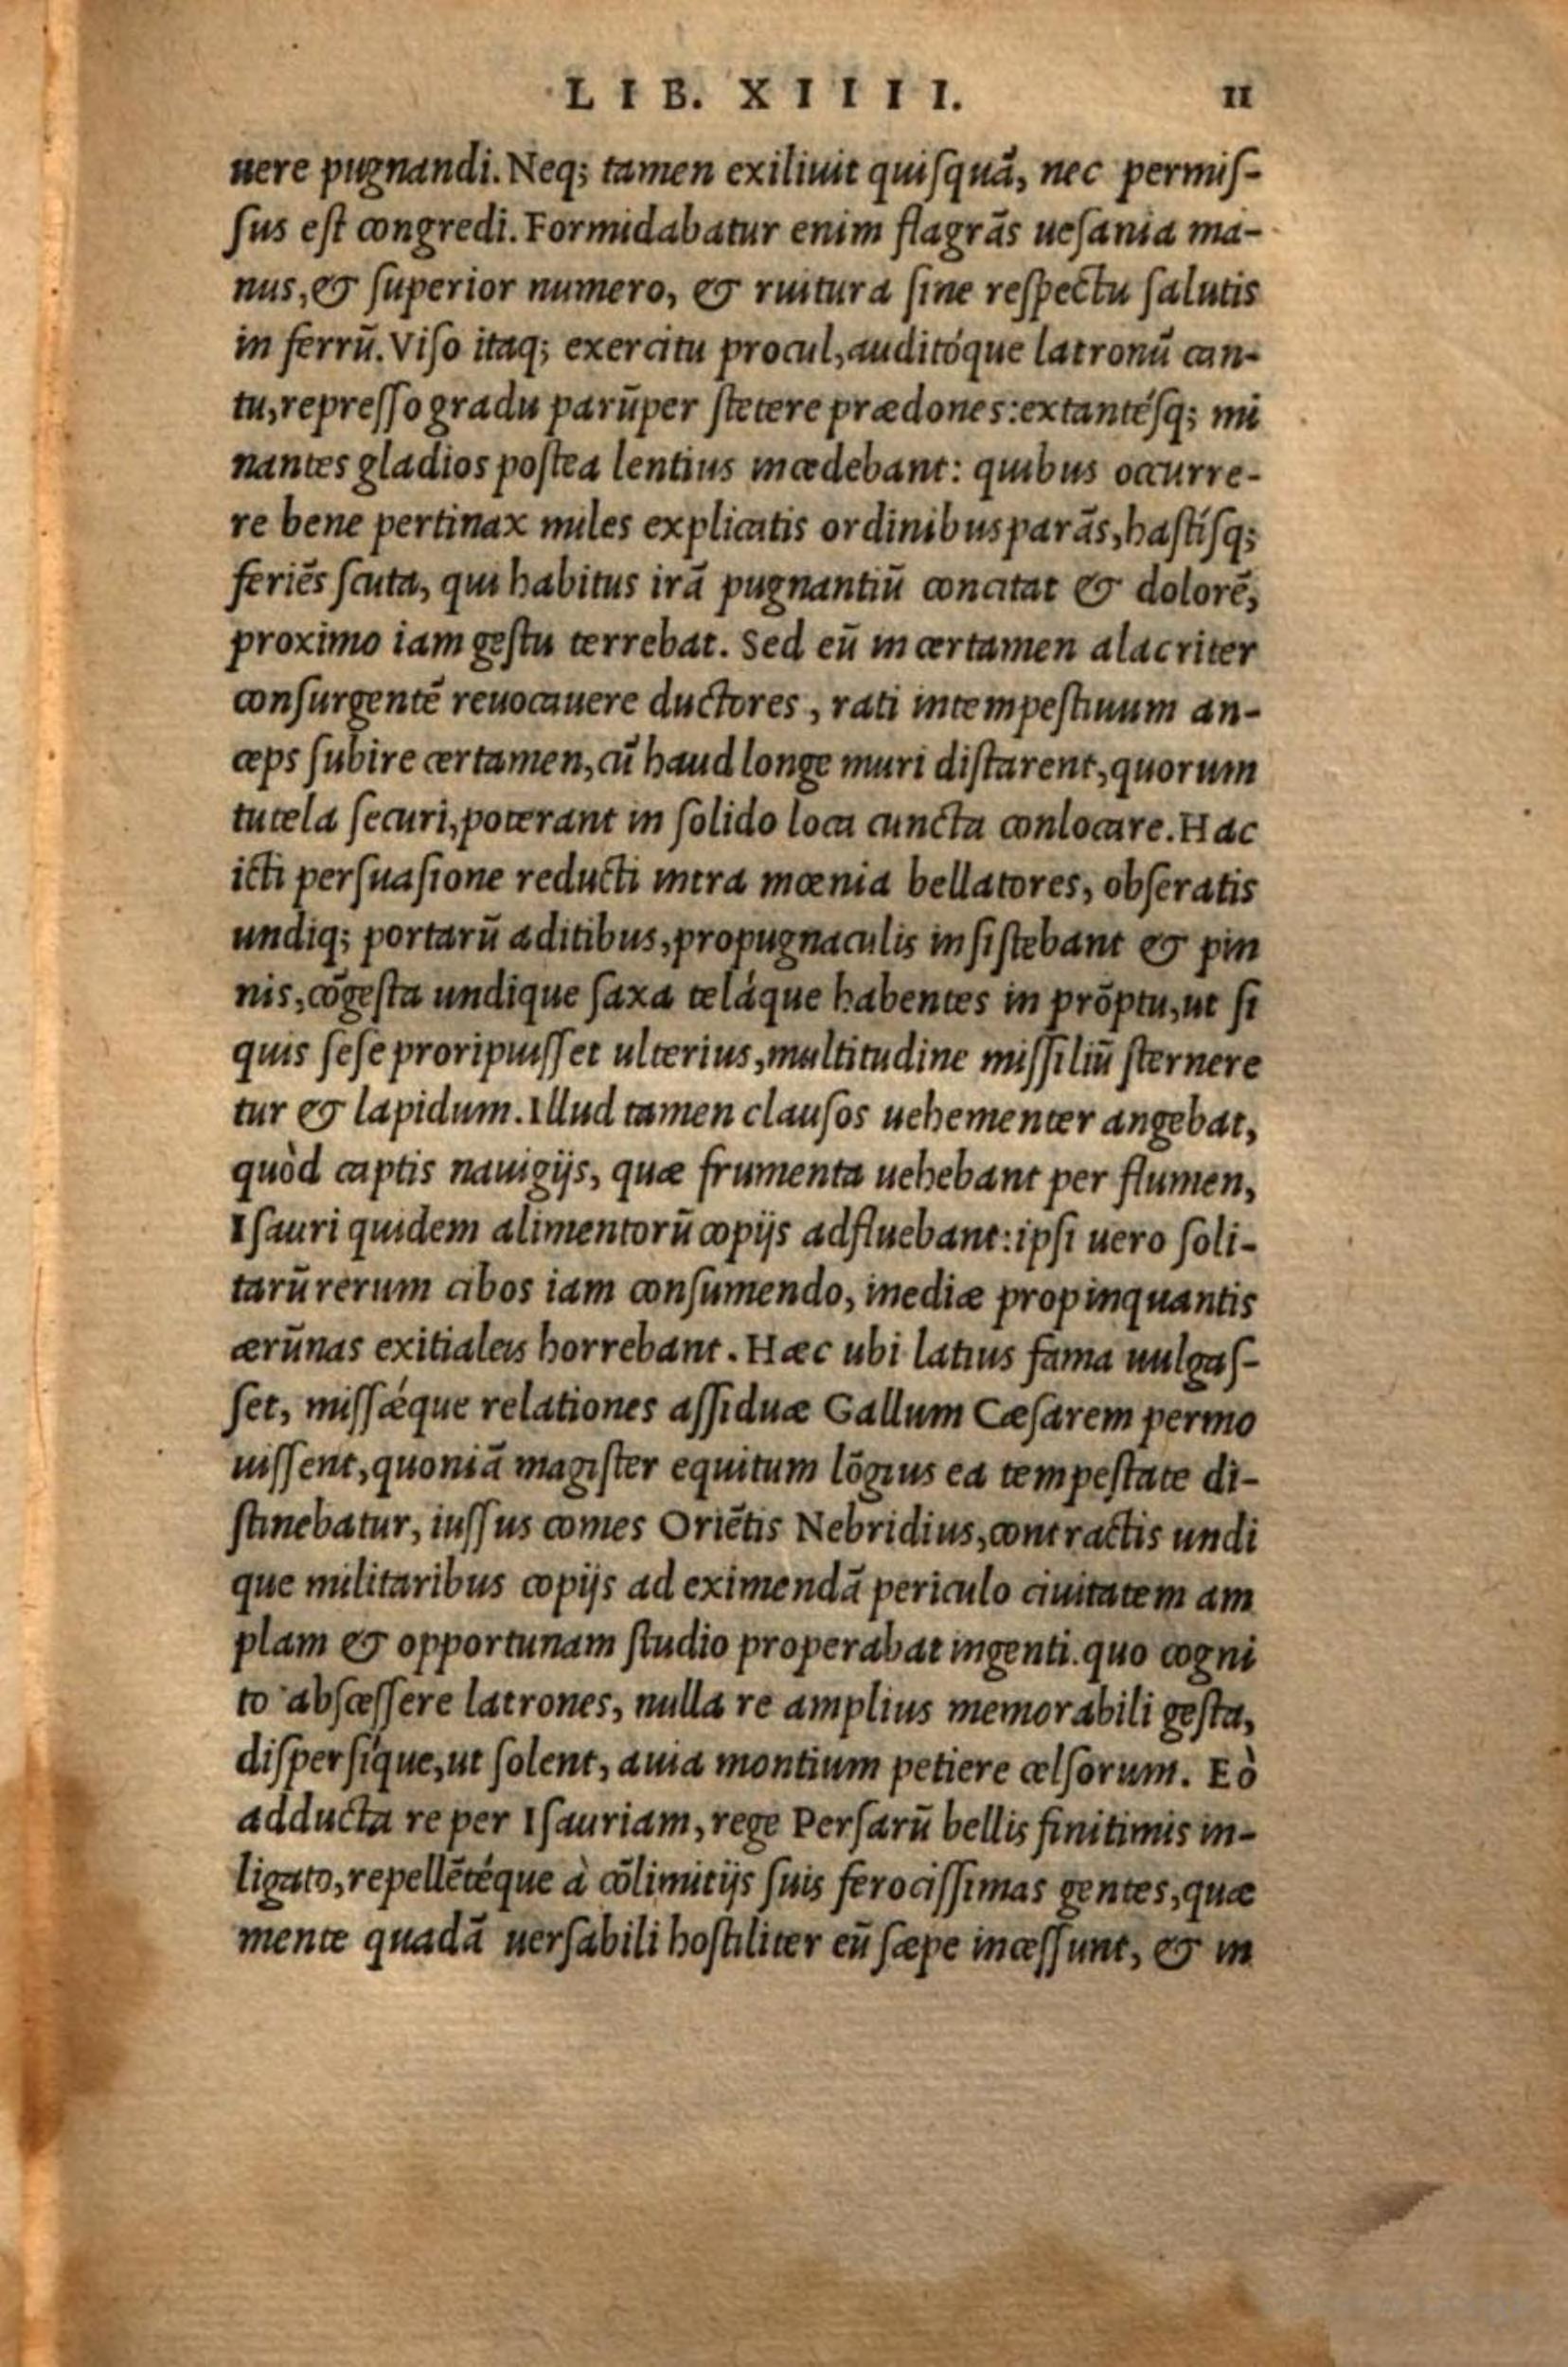 LIB. XIIII. 11
uere pugnandi. Neq; tamen exiliuit quiſquã, nec permiſ-
ſus eſt congredi. Formidabatur enim flagrãs ueſania ma-
nus, & ſuperior numero, & ruitura ſine reſpectu ſalutis
in ferrũ. Viſo itaq; exercitu procul, auditóque latronũ can-
tu, repreſſo gradu parũper ſtetere prædones: extantéſq; mi
nantes gladios poſtea lentius incedebant: quibus occurre-
re bene pertinax miles explicatis ordinibus parãs, haſtíſq;
feriẽs ſcuta, qui habitus irã pugnantiũ concitat & dolorẽ,
proximo iam geſtu terrebat. Sed eũ in certamen alacriter
conſurgentẽ reuocauere ductores, rati intempeſtiuum an-
ceps ſubire certamen, cũ haud longe muri diſtarent, quorum
tutela ſecuri, poterant in ſolido loca cuncta conlocare. Hac
icti perſuaſione reducti intra mœnia bellatores, obſeratis
undiq; portarũ aditibus, propugnaculis inſiſtebant & pin
nis, cõgeſta undique ſaxa teláque habentes in prõptu, ut ſi
quis ſeſe proripuiſſet ulterius, multitudine miſſiliũ ſternere
tur & lapidum. Illud tamen clauſos uehementer angebat,
quòd captis nauigijs, quæ frumenta uehebant per flumen,
Iſauri quidem alimentorũ copijs adfluebant: ipſi uero ſoli-
tarũ rerum cibos iam conſumendo, inediæ propinquantis
ærũnas exitialeis horrebant. Hæc ubi latius fama uulgaſ-
ſet, miſſǽque relationes aſſiduæ Gallum Cæſarem permo
uiſſent, quoniã magiſter equitum lõgius ea tempeſtate di-
ſtinebatur, iuſſus comes Oriẽtis Nebridius, contractis undi
que militaribus copijs ad eximendã periculo ciuitatem am
plam & opportunam ſtudio properabat ingenti. quo cogni
to abſceſſere latrones, nulla re amplius memorabili geſta,
diſperſíque, ut ſolent, auia montium petiere celſorum. Eò
adducta re per Iſauriam, rege Perſarũ bellis finitimis in-
ligato, repellẽtéque à cõlimitijs ſuis ferociſſimas gentes, quæ
mente quadã uerſabili hoſtiliter eũ ſæpe inceſſunt, & in